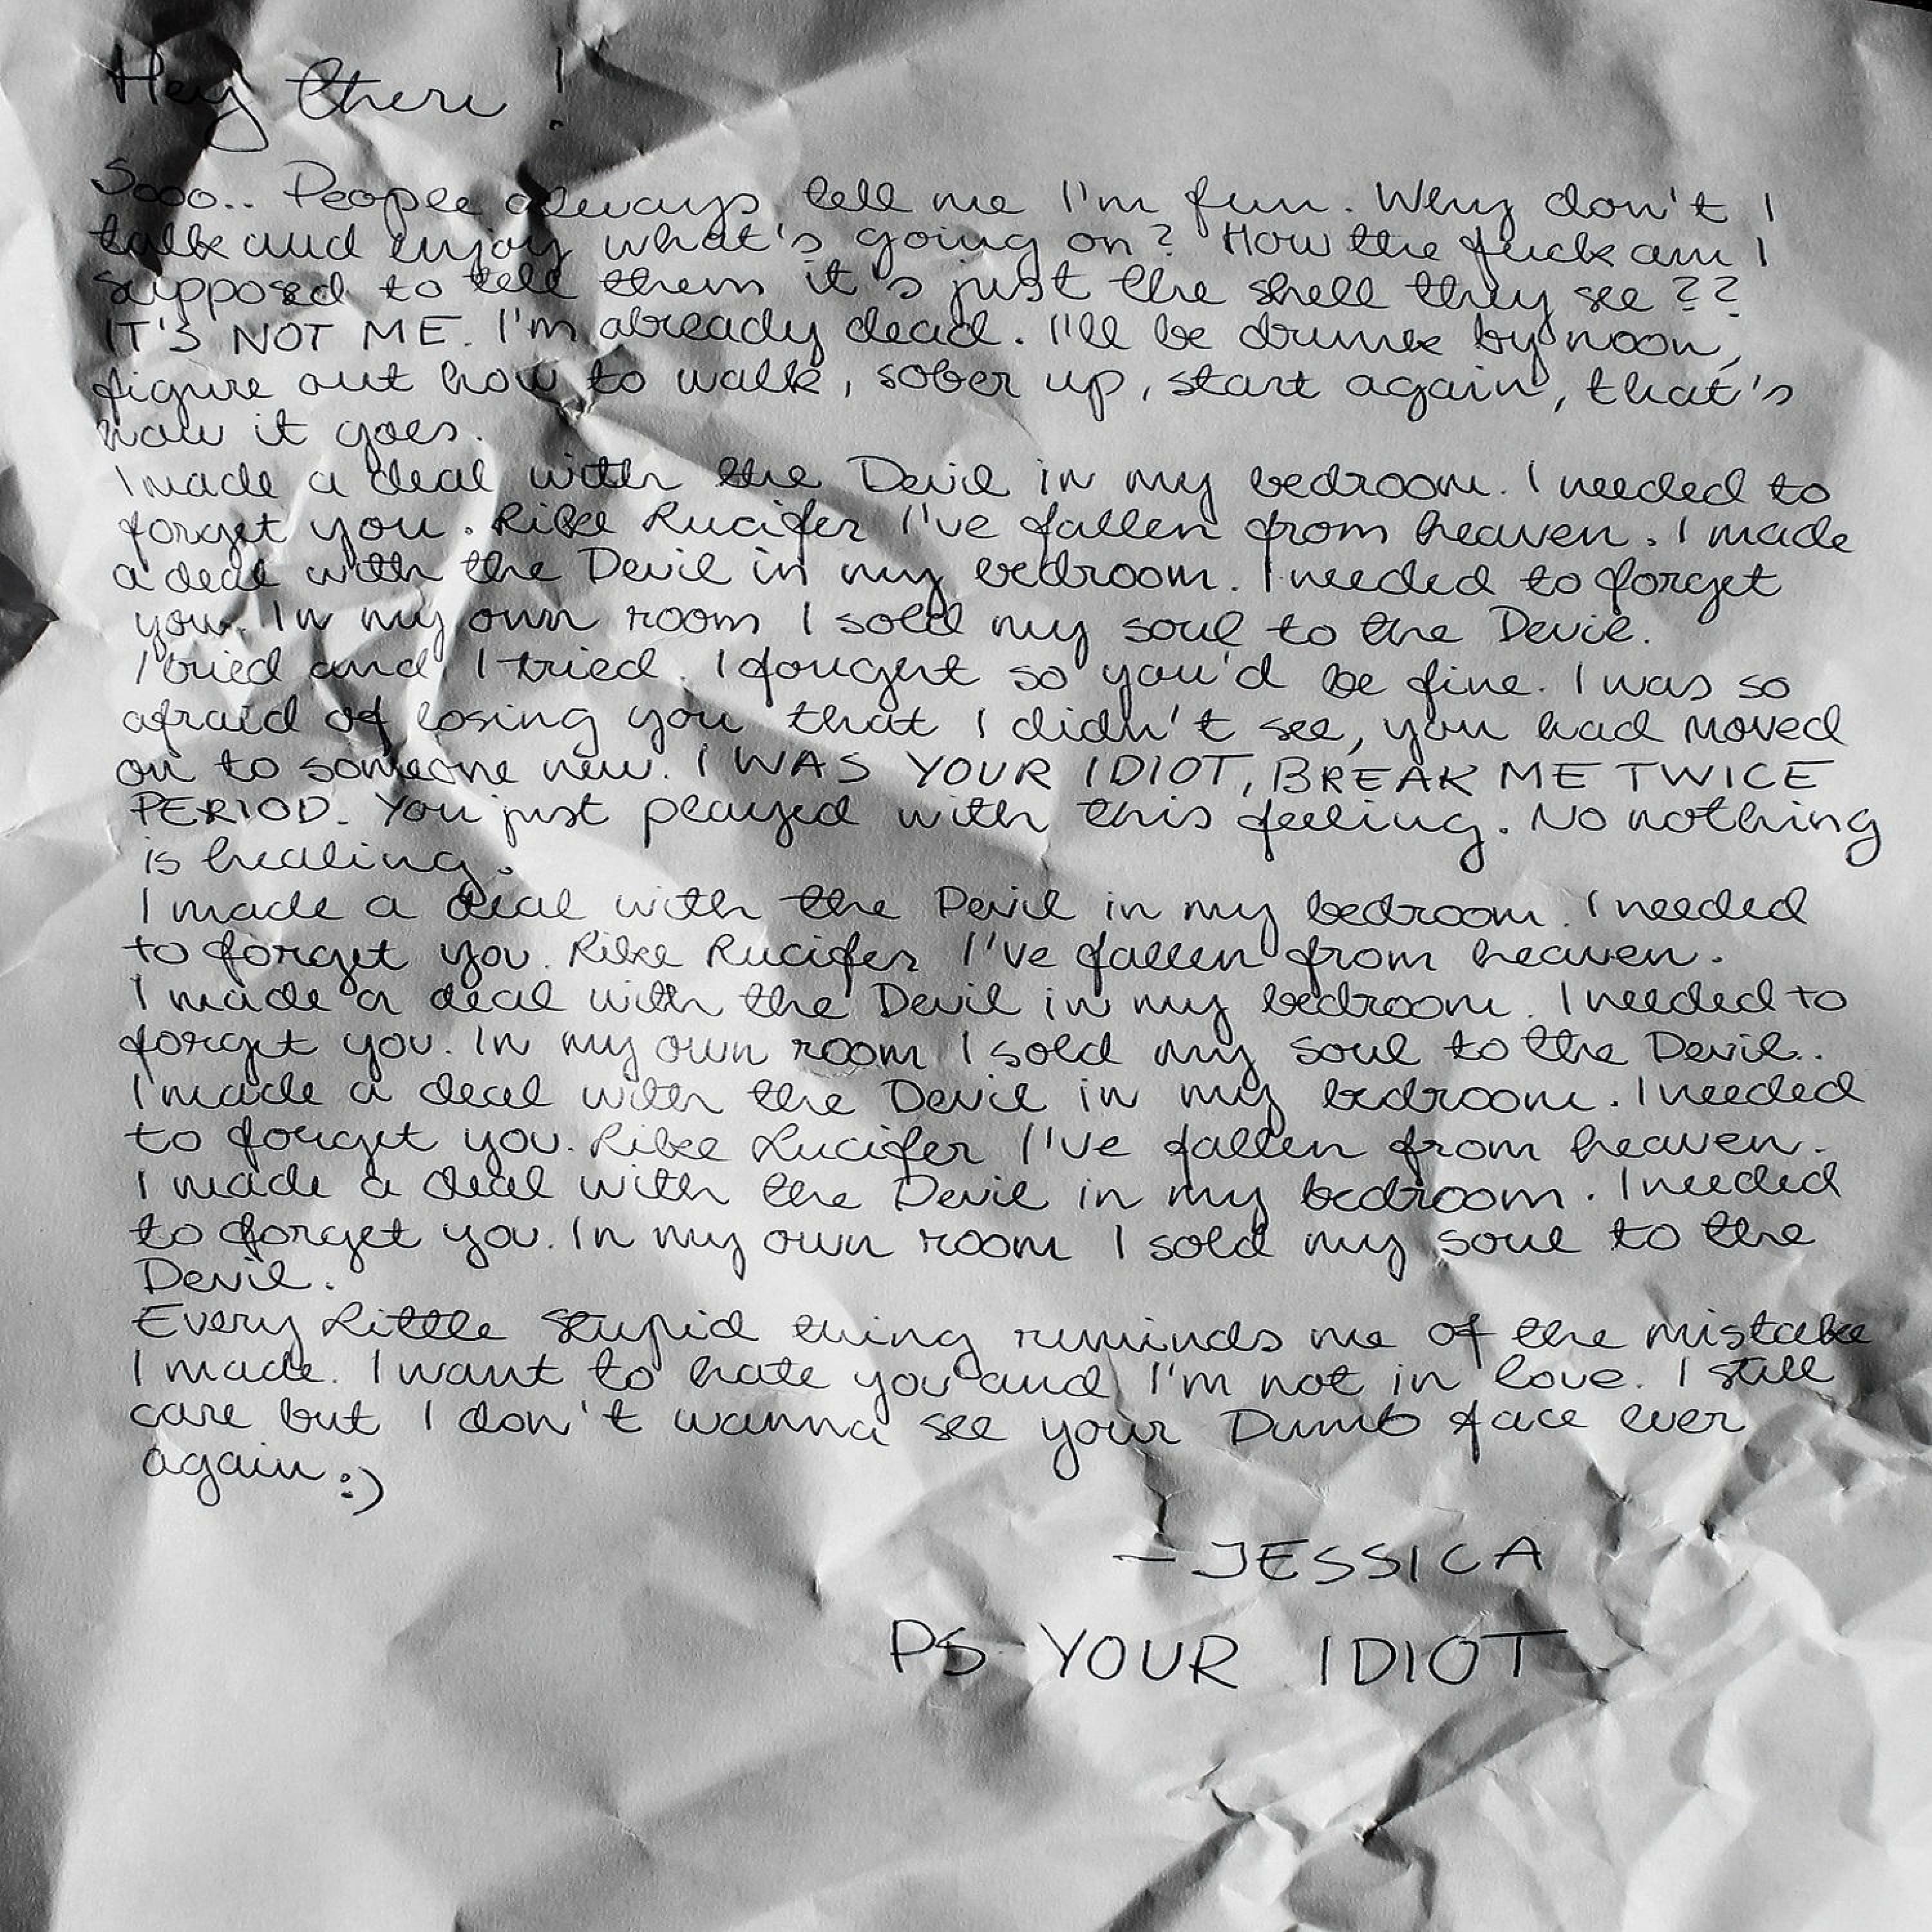 Hey there!
Sooo.. People always tell me I'm fun. Why don't I
talk and enjoy what's going on? How the fuck am I
supposed to tell them it's just the shell they see??
IT'S NOT ME. I'm already dead. I'll be drunk by noon,
figure out how to walk, sober up, start again, that's
how it goes.
I made a deal with the Devil in my bedroom. I needed to
forget you. Like Lucifer I've fallen from heaven. I made
a deal with the Devil in my bedroom. I needed to forget
you. In my own room I sold my soul to the Devil.
I tried and I tried. I fought so you'd be fine. I was so
afraid of losing you that I didn't see, you had moved
on to someone new. I WAS YOUR IDIOT, BREAK ME TWICE
PERIOD. You just played with this feeling. No nothing
is healing.
I made a deal with the Devil in my bedroom. I needed
to forget you. Like Lucifer I've fallen from heaven.
I made a deal with the Devil in my bedroom. I needed to
forget you. In my own room I sold my soul to the Devil..
I made a deal with the Devil in my bedroom. I needed
to forget you. Like Lucifer I've fallen from heaven.
I made a deal with the Devil in my bedroom. I needed
to forget you. In my own room I sold my soul to the
Devil.
Every little stupid thing reminds me of the mistake
I made. I want to hate you and I'm not in love. I still
care but I don't wanna see your Dumb face ever
again :)
- JESSICA
PS YOUR IDIOT